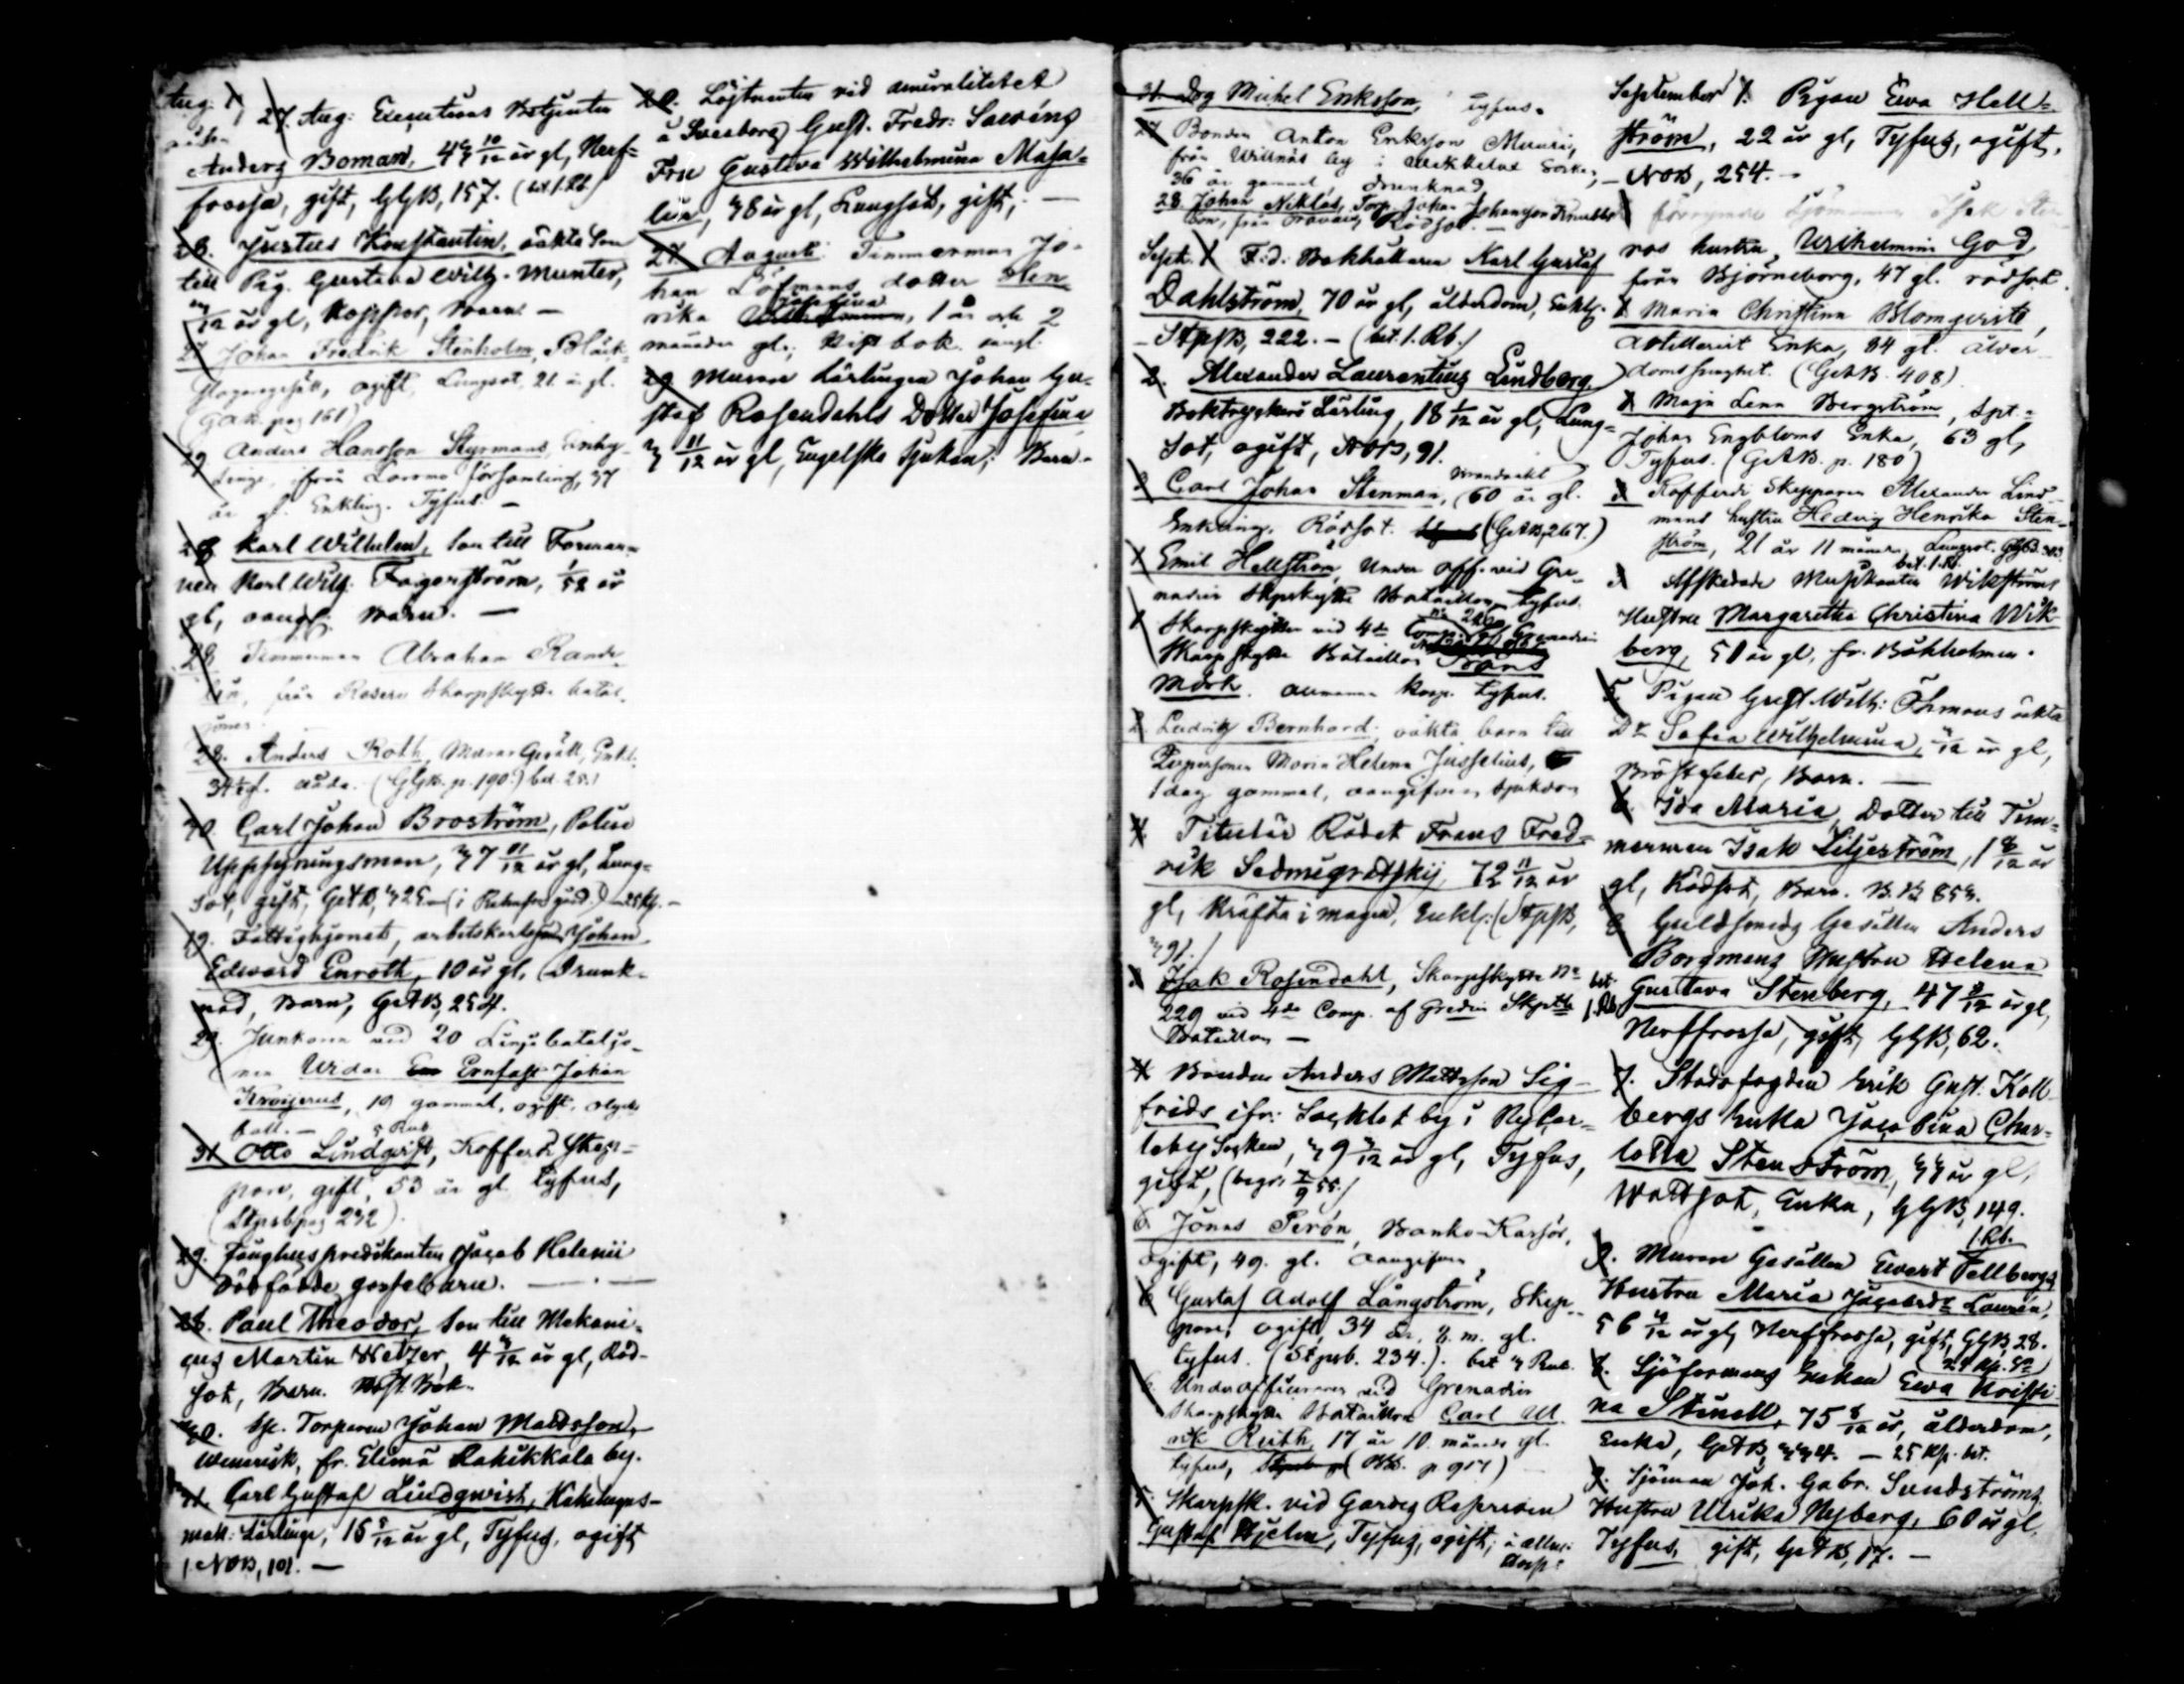 Aug.
27. Aug: Exeqvitions Betjenten
Anders Boman, 47 10/12 år gl, Nerf-
frossa, gift, GGB, 157. (bet. 1. Rb.)
28. Justus Konstantin, oäkta Son
till Pig. Gustava Wilh. Munter,
/12 år gl, Koppor, Barn. —
27 Johan Fredrik Stenholm, Bläck-
slagaregesäll, ogift, Lungsot, 21. år gl.
(GAB. pag 161)
29 Anders Hansson Styrmans,
ifrån församling, 37
år gl. Enkling. Tyfus. —
28 Karl Wilhelm, Son till Forman-
nen Karl Wilh. Fagerström, 1/52 år
gl, oangf. Barn. —
28 Timmerman Abraham Rande-
lin, från Skarpskytte batal-
jonen
28. Anders Roth, Murar Gesäll, Enkl.
34 gl. (GGB. p. 190.) bet. 25.
30. Carl Johan Broström, Polise
Uppsyningsman, 37 11/12 år gl, Lung-
sot, gift, GetB, 325 —
19. Fattighjonet, arbetskarls Johan
Edward Enroth, 10 år gl, Drunk-
nad, Barn, GetB, 254.
29. Junkaren vid 20 Linjebataljo-
nen Widar Ernfast Johan
Kroijerus, 19 gammal, ogift, olycks
hall. — 5 Rub
31 Otto Lindqvist, Kofferdi Skep-
pare, gift, 53 år gl. tyfus,
(Stpsb pag 232)
29. Tukthuspredikanten Jacob Helenii
Dödfödde gossebarn. — . —
28. Paul Theodor, Son till Mekani-
cus Martin Wetzer, 4 /12 år gl, Röd-
sot, Barn. Bok.
30. Sp. Torparen Johan Mattsson,
fr. Elimä Rahikkala by.
31. Carl Gustaf Lindqvist, Kakelugns-
mak. Lärlinge, 16 5/12 år gl, Tyfus, ogift
NOB, 101. —
20. Löjtnanten vid amiralitetet
å Sveaborg Gust. Fredr:
Fru Gustava Wilhelmina Masa-
lin, 38 år gl, Lungsot, gift; —
27 Augusti Timmerman Jo-
han Löfmans dotter Hen-
rika Josefina, 1 år och 2
månader gl.; bok.
29 Murare Lärlingen Johan Gu-
staf Rosendahls Dotter Josefina
3 11/12 år gl, Engelska Sjukan; Barn.
31. Dog Michel Eriksson, tyfus.
27 Bonden Anton Eriksson
från Willnäs by i Socken,
36 år gammal, drunknad
28. Johan Niklas, Torp. Johan Johansson
son, från Rödsot. —
Sept. 1 F.d. Bokhållaren Karl Gustaf
Dahlström, 70 år gl, ålderdom, Enkl.
— StpsB, 222. — (bet. 1. Rb.)
2. Alexander Laurentius Lindberg
Boktryckeri Lärling, 18 1/12 år gl, Lung-
sot, ogift, NOB, 91.
3 Carl Johan Stenman, 60 år gl.
Enkling. Rödsot. (GetB, 267.)
1 Emil Hellström, Under off. vid Gre-
nadier Skpskytte Bataillon tyfus.
1 Skarpskytten vid 4de Comp. Grenadier
Skarpskytte Bataillon Frans
Mark. allmänna Kosp. tyfus.
2 Ludvig Bernhard, oäkta barn till
Pigpersonen Maria Helena Jusselius,
1 dag gammal, oangifven sjukdom
4 Titulär Rådet Frans Fred-
rik Sedmigratskij, 72 11/12 år
gl, Kräfta i magen, Enkl: (StpsB,
391.)
Isak Rosendahl, Skarpskytte No
229 vid 4de Comp. af Gredier Skptte
Bataillon —
bet. 1 Rb
4 Bonden Anders Mattsson Sig-
frids ifr: by i Nykar-
leby Socken, 39 /12 år gl, Tyfus,
gift, (begr. 7/9 55.)
6 Jonas Perón, Banko-Kassör,
ogift, 49. gl. oangifven
6 Gustaf Adolf Långström, Skep-
pare, ogift, 34 år, 3. m. gl.
tyfus. (Stpsb. 234.). bet 3 Rub.
6. Underofficeraren vid Grenadier
Skarpskytte Bataillon Carl Ul-
rik Ruth, 17 år 10. månad gl.
tyfus, p 917)
5 Skarpsk. vid Gardes Reserven
Gustaf Hjelm, Tyfus, ogift; i allm:
Kosp:
September 1. Pigan Ewa Hell-
ström, 22 år gl, Tyfus, ogift,
— NOB, 254. —
Sjömannen Isak
ros hustru, Wilhelmina God,
från Björneborg, 47 gl. rödsot.
Maria Christina Blomqvist,
Artillerist Enka, 84 gl. ålder-
domssvaghet. (GetB. 408)
Maja Lena Bergström, Spt.
Johan Engbloms Enka, 63 gl,
Tyfus. (GetB. p. 180)
3 Kofferdi Skepparen Alexander Lind-
mans hustru Hedvig Henrika Sten-
ström, 21 år 11 månader, Lungsot. GGB. 303
bet. 1. Rb.
3 Afskedade Musikanten Wikströms
Hustru Margaretha Christina Wik-
berg, 51 år gl, fr. Båkholmen.
5 Pigan Gust. Wilh: Öhmans oäkta
Dr Sofia Wilhelmina, /12 år gl,
Bröstfeber, Barn. —
6. Ida Maria, Dotter till Tim-
merman Isak Liljeström, 1 8/12 år
gl, Rödsot, Barn. B.B. 853.
8 Guldsmeds Gesällen Anders
Borgmans Hustru Helena
Gustava Stenberg, 47 9/12 år gl,
Nerffrossa, gift, GGB, 62.
7. Stadsfogden Erik Gust. Koll-
bergs Enka Jacobina Char-
lotta Stenström, 33 år gl,
Wattsot, Enka, GGB, 149.
1. Rb.
9. Murare Gesällen Ewert Fellbergs
Hustru Maria Jacobsdr Laurén,
56 4/12 år gl, Nerffrossa, gift, GGB, 28.
8. Sjöformans Enkan Ewa Kristi-
na Stinell, 75 8/12 år, ålderdom,
Enka, GetB, 334. — 25 Kp. bet.
9. Sjöman Joh. Gabr. Sundströms
Hustru Ulrika Nyberg, 60 år gl.
Tyfus, gift, GetB, 17. —